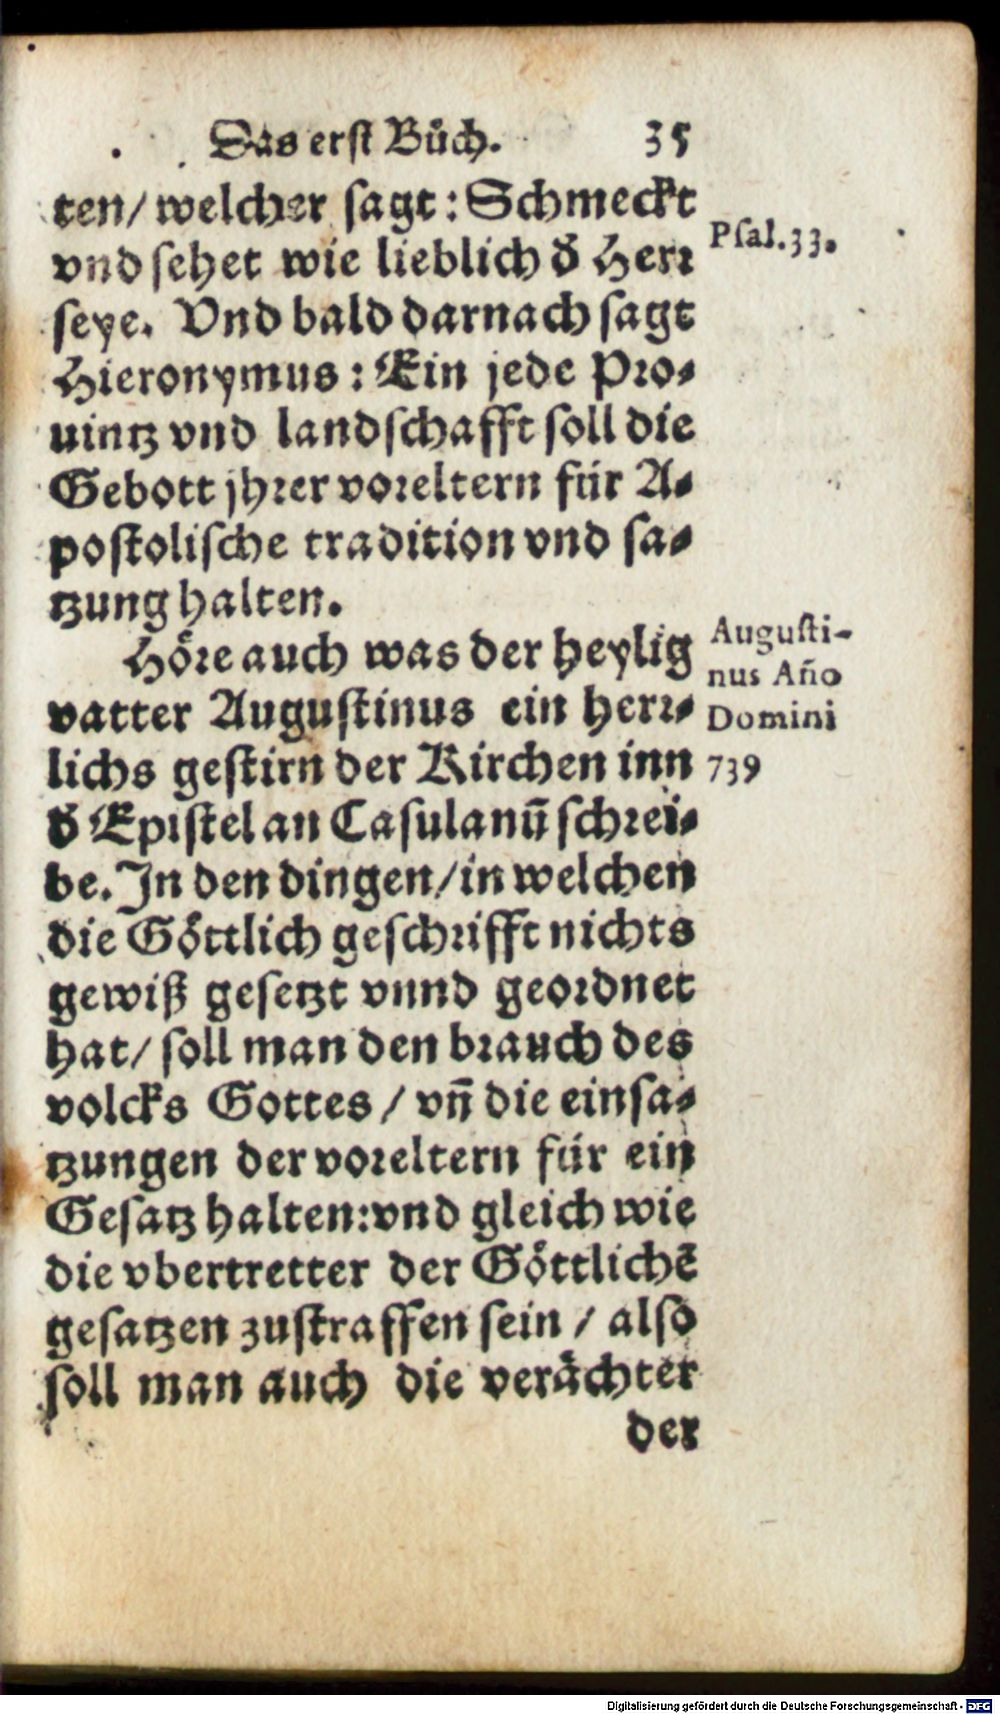 Das erst Bůch. 35
ten/ welcher sagt: Schmeckt
vnd sehet wie lieblich d̛ Herr
seye. Vnd bald darnach sagt
Hieronymus: Ein jede Pro⸗
uintz vnd landschafft soll die
Gebott jhrer voreltern für A⸗
postolische tradition vnd sa⸗
tzung halten.
Psal.33.
Hoͤre auch was der heylig
vatter Augustinus ein herr⸗
lichs gestirn der Kirchen inn
d̛ Epistel an Casulanū schrei⸗
be. In den dingen/ in welchen
die Goͤttlich geschrifft nichts
gewiß gesetzt vnnd geordnet
hat/ soll man den brauch des
volcks Gottes / vn̄ die einsa⸗
tzungen der voreltern für ein
Gesatz halten: vnd gleich wie
die vbertretter der Goͤttlichē
gesatzen zustraffen sein / also
soll man auch die veraͤchter
der
Augusti-
nus Año
Domini
739
Digitalisierung gefördert durch die Deutsche Forschungsgemeinschaft - DFG